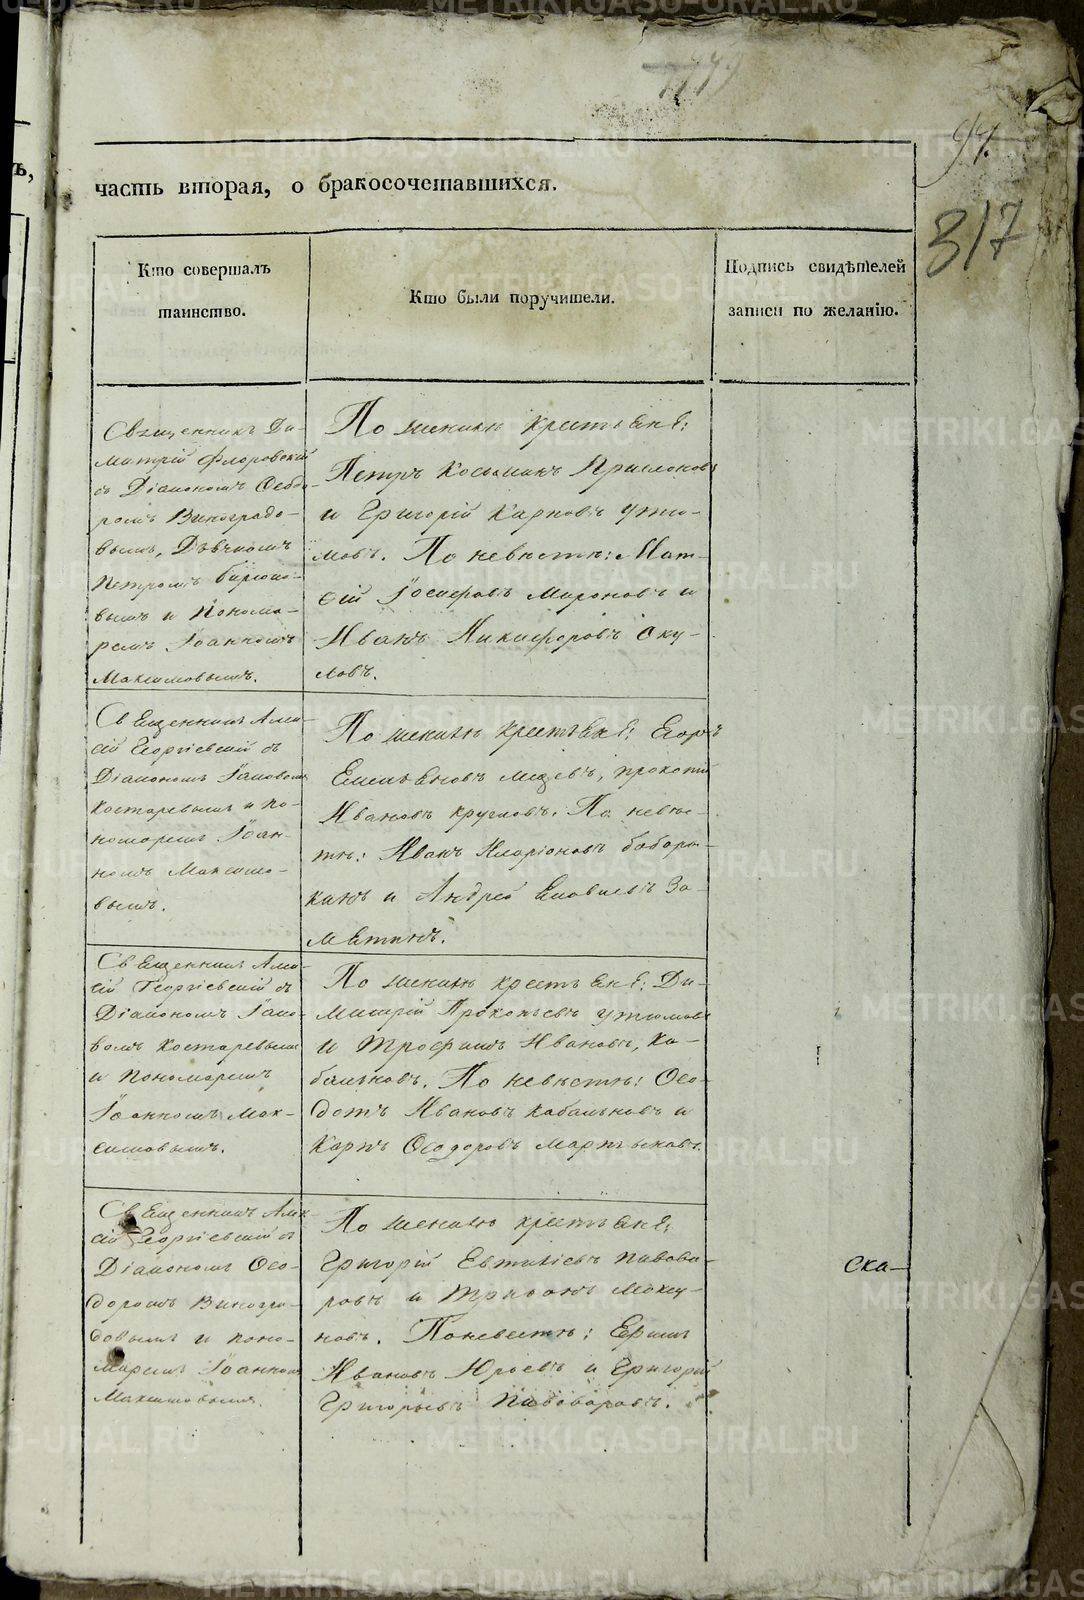 часть вторая, о бракосочетавшихся.
94.
317
Кто совершалъ
таинство.
Кто были поручители.
Подпись свидѣтелей
записи по желанію.
Священникъ Ди-
митрій Флоровскій
съ Діакономъ Ѳеодо-
ромъ Виноградо-
вымъ, Дьячкомъ
Петромъ
вымъ и Понома-
ремъ Іоанномъ
Максимовымъ.
По женихѣ крестьяне:
Петръ Косьминъ
и Григорій Карповъ Утю-
мовъ. По невѣстѣ: Мат-
ѳій Іосифовъ Мироновъ и
Иванъ Никифоровъ Оку-
ловъ.
Священникъ Алек-
сій Георгіевскій съ
Діакономъ Іаковомъ
Костаревымъ и по-
номаремъ Іоан-
номъ Максимо-
вымъ.
По женихѣ крестьяне: Егоръ
Емельяновъ, Прокопій
Ивановъ Кругловъ. По невѣс-
тѣ: Иванъ Иларіоновъ Бабора-
кинъ и Андрей За-
мятинъ.
Священникъ Алек-
сій Георгіевскій съ
Діакономъ Іако-
вомъ Костаревымъ
и Пономаремъ
Іоанномъ Мак-
симовымъ.
По женихѣ крестьяне: Ди-
митрій Прокопьевъ Утюмовъ
и Трофимъ Ивановъ, Ка-
бальковъ. По невѣстѣ: Ѳео-
дотъ Ивановъ Кабальковъ и
Карпъ Ѳеодоровъ Мартьяновъ.
Священникъ Алек-
сій Георгіевскій съ
Діакономъ Ѳео-
доромъ Виногра-
довымъ и поно-
маремъ Іоанномъ
Максимовымъ.
По женихѣ крестьяне:
Григорій Евтихіевъ Пивова-
ровъ и Трифонъ Мокшу-
новъ. Поневестѣ: Ермилъ
Ивановъ Юрьевъ и Григорій
Григорьевъ Пивоваровъ.
ска-
METRIKI.GASO-URAL.RU